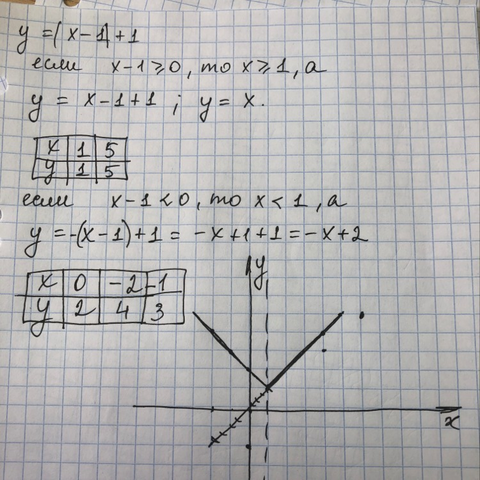 y = |x-1|+1
если x-1≥0, то x≥1, а
y = x-1+1 ; y = x.
x 1 5
y 1 5
если x-1<0, то x<1, а
y = -(x-1)+1 = -x+1+1 = -x+2
x 0 -2 -1
y 2 4 3
y
x